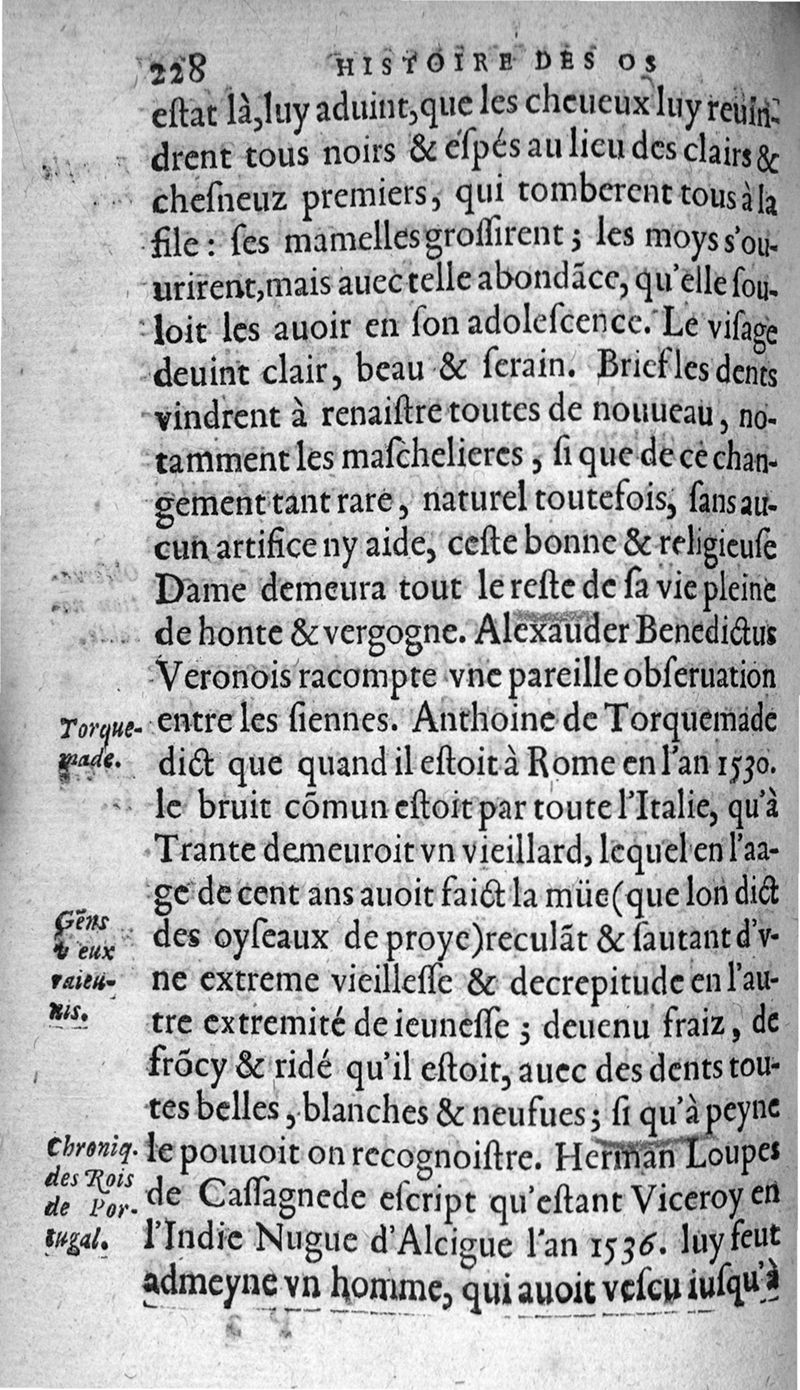 228 HISTOIRE DES OS
eſtat là, luy aduint, que les cheueux luy reuin-
drent tous noirs & eſpés au lieu des clairs &
cheſneuz premiers, qui tomberent tous à la
file: ſes mamelles groſſirent; les moys s'ou-
urirent, mais auec telle abondãce, qu'elle ſou-
loit les auoir en ſon adoleſcence. Le viſage
deuint clair, beau & ſerain. Brief les dents
vindrent à renaiſtre toutes de nouueau, no-
tamment les maſchelieres, ſi que de ce chan-
gement tant rare, naturel toutefois, ſans au-
cun artifice ny aide, ceſte bonne & religieuſe
Dame demeura tout le reſte de ſa vie pleine
de honte & vergogne. Alexander Benedictus
Veronois racompte vne pareille obſeruation
entre les ſiennes. Anthoine de Torquemade
Torque-
made.
dict que quand il eſtoit à Rome en l'an 1530.
le bruit cõmun eſtoit par toute l'Italie, qu'à
Trante demeuroit vn vieillard, lequel en l'aa-
ge de cent ans auoit faict la müe (que lon dict
Gẽns
v eux
raieu-
nis.
des oyſeaux de proye) reculãt & ſautant d'v-
ne extreme vieilleſſe & decrepitude en l'au-
tre extremité de ieuneſſe; deuenu fraiz, de
frõcy & ridé qu'il eſtoit, auec des dents tou-
tes belles, blanches & neufues; ſi qu'à peyne
le pouuoit on recognoiſtre. Herman Loupes
Chroniq.
des Rois
de Por-
tugal.
de Caſſagnede eſcript qu'eſtant Viceroy en
l'Indie Nugue d'Alcigue l'an 1536. luy feut
admeyne vn homme, qui auoit veſcu iuſqu'à